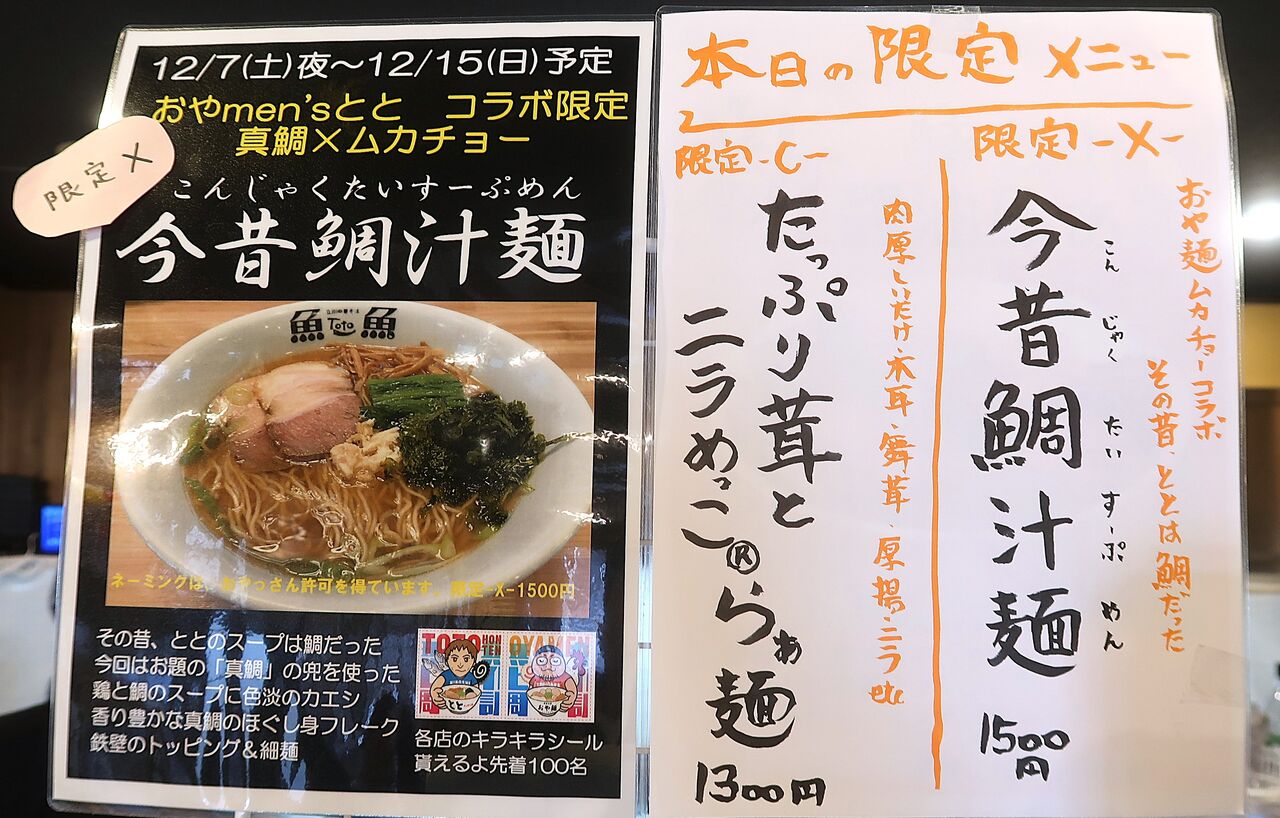 12/7(土)夜～12/15(日)予定
おやmen'sとと コラボ限定
真鯛×ムカチョー
限定X
こんじゃくたいすーぷめん
今昔鯛汁麺
魚 Toto 魚
ネーミングは、おやっさん許可を得ています。限定-X-1500円
その昔、ととのスープは鯛だった
今回はお題の「真鯛」の兜を使った
鶏と鯛のスープに色淡のカエシ
香り豊かな真鯛のほぐし身フレーク
鉄壁のトッピング＆細麺
TOTO HONTEN OYAMEN
とと おや麺
各店のキラキラシール
貰えるよ先着100名
本日の限定メニュー
限定-X-
おや麺ムカチョーコラボ
その昔、ととは鯛だった
今昔鯛汁麺
こんじゃくたいすーぷめん
1500円
限定-C-
肉厚しいたけ・木耳・舞茸・厚揚・ニラetc
たっぷり茸と
ニラめっこ®らぁ麺
1300円